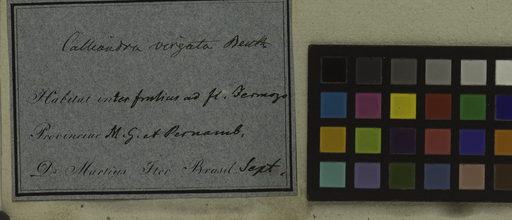 Calliandra virgata Benth
Habitat inter frutius ad fl. Formozo
Provinciae M. G. et Pernamb.
Dr. Martius Iter Brasil. Sept.